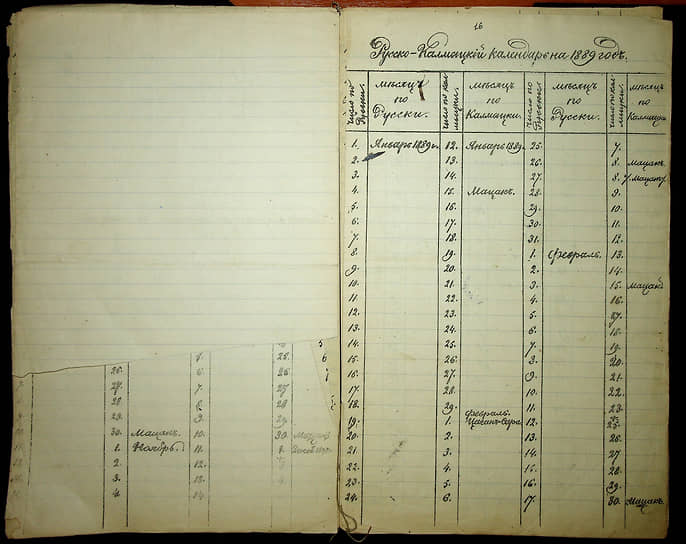 16
Русско-Калмыцкій календарь на 1889 годъ.
Число по Русски. Мѣсяцъ по Русски. Число по Калмыцки. Мѣсяцъ по Калмыцки. Число по Русски. Мѣсяцъ по Русски. Число по Калмыцки. Мѣсяцъ по Калмыцки
1. Январь 1889 г. 12. Январь 1889. 25. 7.
2. 13. 26. 8. Мацакъ.
3. 14. 27. 8. Мацакъ.
4. 15. Мацакъ. 28. 9.
5. 16. 29. 10.
6. 17. 30. 11.
7. 18. 31. 12.
8. 19. 1. Февраль. 13.
9. 20. 2. 14.
10. 21. 3. 15. Мацакъ
11. 22. 4. 16.
12. 23. 5. 17.
13. 24. 6. 18.
14. 25. 7. 19.
15. 26. 8. 20.
16. 27. 9. 21.
17. 28. 10. 22.
18. 29. 11. 23.
19. Февраль. 1. Цаганъ-Сара. 12. 25.
20. 2. 13. 26.
21. 3. 14. 27
22. 4. 15. 28.
23. 5. 16. 29.
24. 6. 17. 30. Мацакъ.
25. 6
26. 6 26.
27. 7. 27
28 8. 28
29. 9. 29.
30. Мацакъ. 10. 30.
1. Ноябрь. 11. 1.
2. 12.
3. 13.
4. 14.